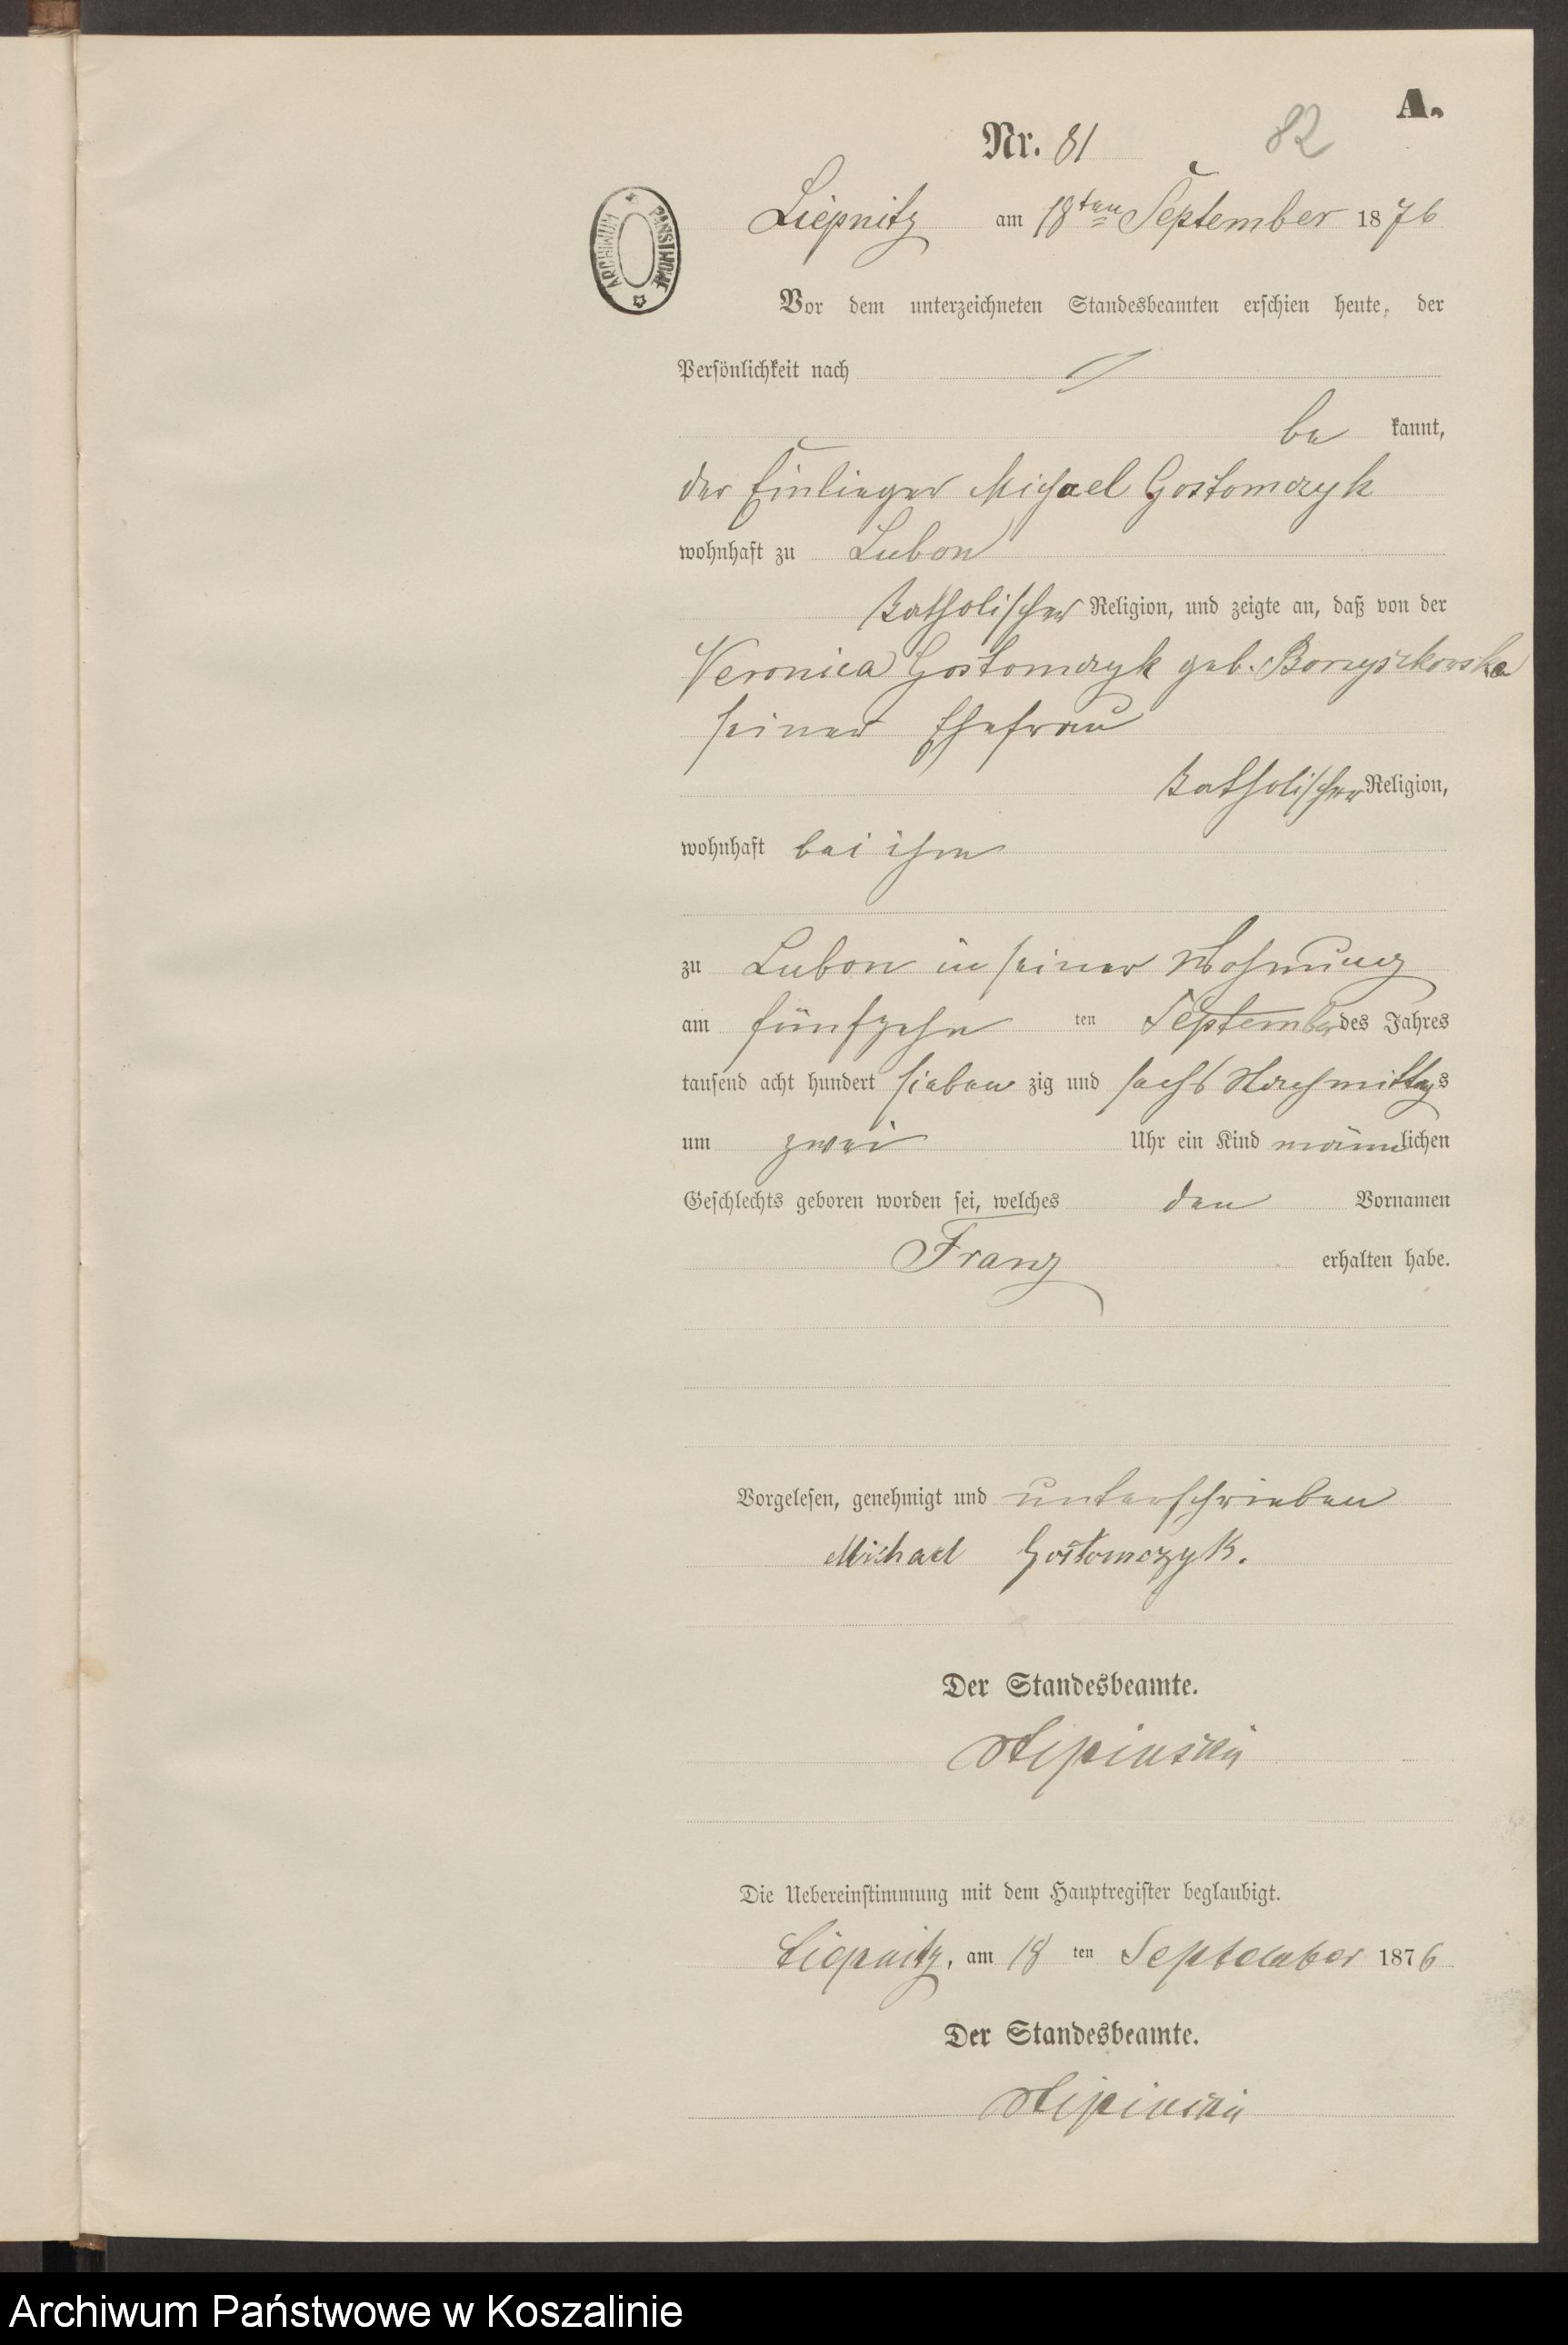 A.
Nr. 81
82
Liepnitz am 18ten September 1876
ARCHIWUM PAŃSTWOWE
Vor dem unterzeichneten Standesbeamten erschien heute, der
Persönlichkeit nach
be kannt,
der Einlieger Michael Gostomczyk
wohnhaft zu Lubon
katholischer Religion, und zeigte an, daß von der
Veronica Gostomczyk geb. Borzyszkowska
seiner Ehefrau
katholischer Religion,
wohnhaft bei ihm
zu Lubon in seiner Wohnung
am fünfzehn ten September des Jahres
tausend acht hundert sieben zig und sechs Nachmittags
um zwei Uhr ein Kind männlichen
Geschlechts geboren worden sei, welches den Vornamen
Franz erhalten habe.
Vorgelesen, genehmigt und unterschrieben
Michael Gostomczyk.
Der Standesbeamte.
Die Uebereinstimmung mit dem Hauptregister beglaubigt.
Liepnitz, am 18 ten September 1876
Der Standesbeamte.
Archiwum Państwowe w Koszalinie